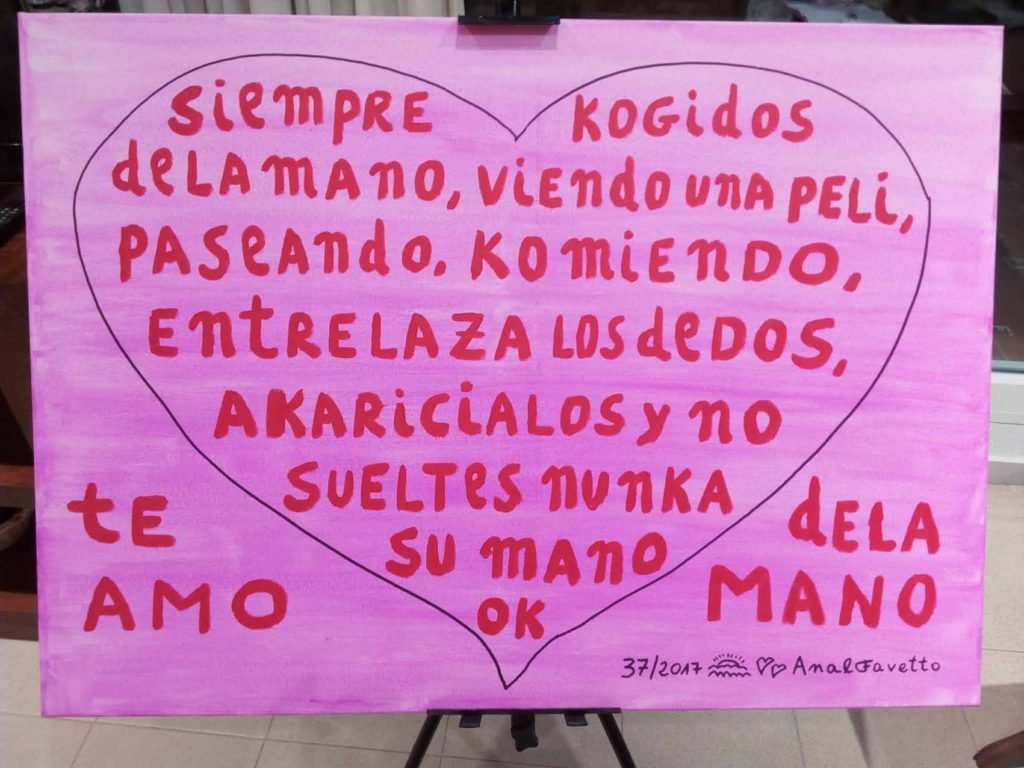 siempRE KOGidos
deLAmANO, viendo unA PELi,
PASeAndo. KOmiEnDO,
EntRELAZA LOS deDOS,
AKARiCiALOS y nO
SUELtes nunKA
SU mANO
OK
tE AMO
dELA MANO
37/2017 AnaRFavetto